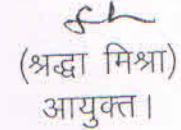 (श्रद्धा मिश्रा)
आयुक्त।